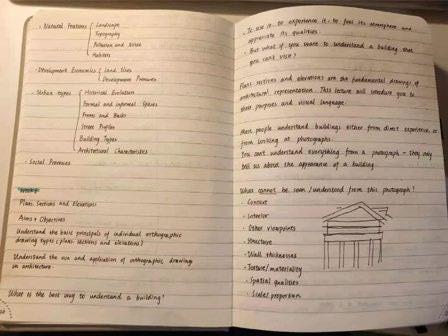 · Natural Features
Landscape
Topography
Pollution and Noise
Habitats
· Development Economics
Land Uses
Development Pressures
· Urban types
Historical Evolution
Formal and informal spaces
Fronts and Backs
Street Profiles
Building Types
Architectural Characteristics
· Social Processes
Plans, Sections and Elevations
Aims + Objectives
Understand the basic principals of individual orthographic
drawing types (plans, sections and elevations)
Understand the use and application of orthographic drawing
in architecture.
What is the best way to understand a building?
· To use it, to experience it, to feel its atmosphere and
appreciate its qualities
· But what if you want to understand a building that
you can't visit?
Plans, sections and elevations are the fundamental drawings of
architectural representation. This lecture will introduce you to
their purposes and visual language.
Most people understand buildings either from direct experience or
from looking at photographs.
You can't understand everything from a photograph - they only
tell us about the appearance of a building.
What cannot be seen/understood from this photograph?
· Context
· Interior
· Other viewpoints
· Structure
· Wall thicknesses
· Texture/materiality
· Spatial qualities
· Scale/proportion